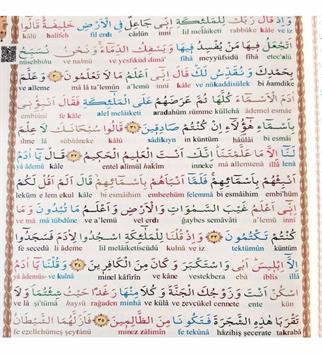 وَاِذْ قَالَ رَبُّكَ لِلْمَلٰٓئِكَةِ اِنّ۪ي جَاعِلٌ فِي الْاَرْضِ خَل۪يفَةًۜ قَالُٓوا
kâlû halîfeh fil erdı câilün innî lil melâiketi rabbüke kâle ve iz
اَتَجْعَلُ ف۪يهَا مَنْ يُفْسِدُ ف۪يهَا وَيَسْفِكُ الدِّمَٓاءَۚ وَنَحْنُ نُسَبِّحُ
ve nahnü ve yesfiküd dimâ' fîhâ meyyüfsidü fîhâ etec'alü
بِحَمْدِكَ وَنُقَدِّسُ لَكَۜ قَالَ اِنّ۪ٓي اَعْلَمُ مَا لَا تَعْلَمُونَ ﴿٣٠﴾ وَعَلَّمَ
ve alleme mâ lâ ta'lemûn a'lemü innî kâle bi hamdike
اٰدَمَ الْاَسْمَٓاءَ كُلَّهَا ثُمَّ عَرَضَهُمْ عَلَى الْمَلٰٓئِكَةِ فَقَالَ اَنْبِؤُ۫ن۪ي
fe kâle alel melâiketi aradahüm sümme küllehâ ademel esmâe
بِاَسْمَٓاءِ هٰٓؤُ۬لَٓاءِ اِنْ كُنْتُمْ صَادِق۪ينَ ﴿٣١﴾ قَالُوا سُبْحَانَكَ لَا عِلْمَ
kâlû sâdikıyn in küntüm hâülâi bi esmâi
لَنَٓا اِلَّا مَا عَلَّمْتَنَاۜ اِنَّكَ اَنْتَ الْعَل۪يمُ الْحَك۪يمُ ﴿٣٢﴾ قَالَ يَٓا اٰدَمُ
kâle hakîm entel alîmül inneke mâ allemtenâ illâ lenâ
اَنْبِئْهُمْ بِاَسْمَٓائِهِمْۚ فَلَمَّٓا اَنْبَاَهُمْ بِاَسْمَٓائِهِمْۙ قَالَ اَلَمْ اَقُلْ لَكُمْ
leküm e lem ekul kâle bi esmâihim embeehüm felemmâ bi esmâihim embi'hüm
اِنّ۪ٓي اَعْلَمُ غَيْبَ السَّمٰوَاتِ وَالْاَرْضِۙ وَاَعْلَمُ مَا تُبْدُونَ وَمَا
ve mâ mâ tübdûne ve a'lemü vel erdı ğaybes semâvâti a'lemü innî
كُنْتُمْ تَكْتُمُونَ ﴿٣٣﴾ وَاِذْ قُلْنَا لِلْمَلٰٓئِكَةِ اسْجُدُوا لِاٰدَمَ فَسَجَدُٓوا
fe secedû li âdeme lil melâiketiscüdû kulnâ ve iz tektümûn küntüm
اِلَّٓا اِبْل۪يسَۜ اَبٰى وَاسْتَكْبَرَ وَكَانَ مِنَ الْكَافِر۪ينَ ﴿٣٤﴾ وَقُلْنَا يَٓا اٰدَمُ
ve kulnâ minel kâfirîn ve kâne vestekbera ebâ iblîs illâ
اسْكُنْ اَنْتَ وَزَوْجُكَ الْجَنَّةَ وَكُلَا مِنْهَا رَغَدًا حَيْثُ شِئْتُمَا وَلَا
ve lâ şi'tümâ haysü rağaden minhâ ve külâ ve zevcükel cennete ente
تَقْرَبَا هٰذِهِ الشَّجَرَةَ فَتَكُونَا مِنَ الظَّالِم۪ينَ ﴿٣٥﴾ فَاَزَلَّهُمَا الشَّيْطَانُ
fe ezellehümeş şeytânü minez zâlimîn fe tekûnâ hâzihiş şecerate takrabâ